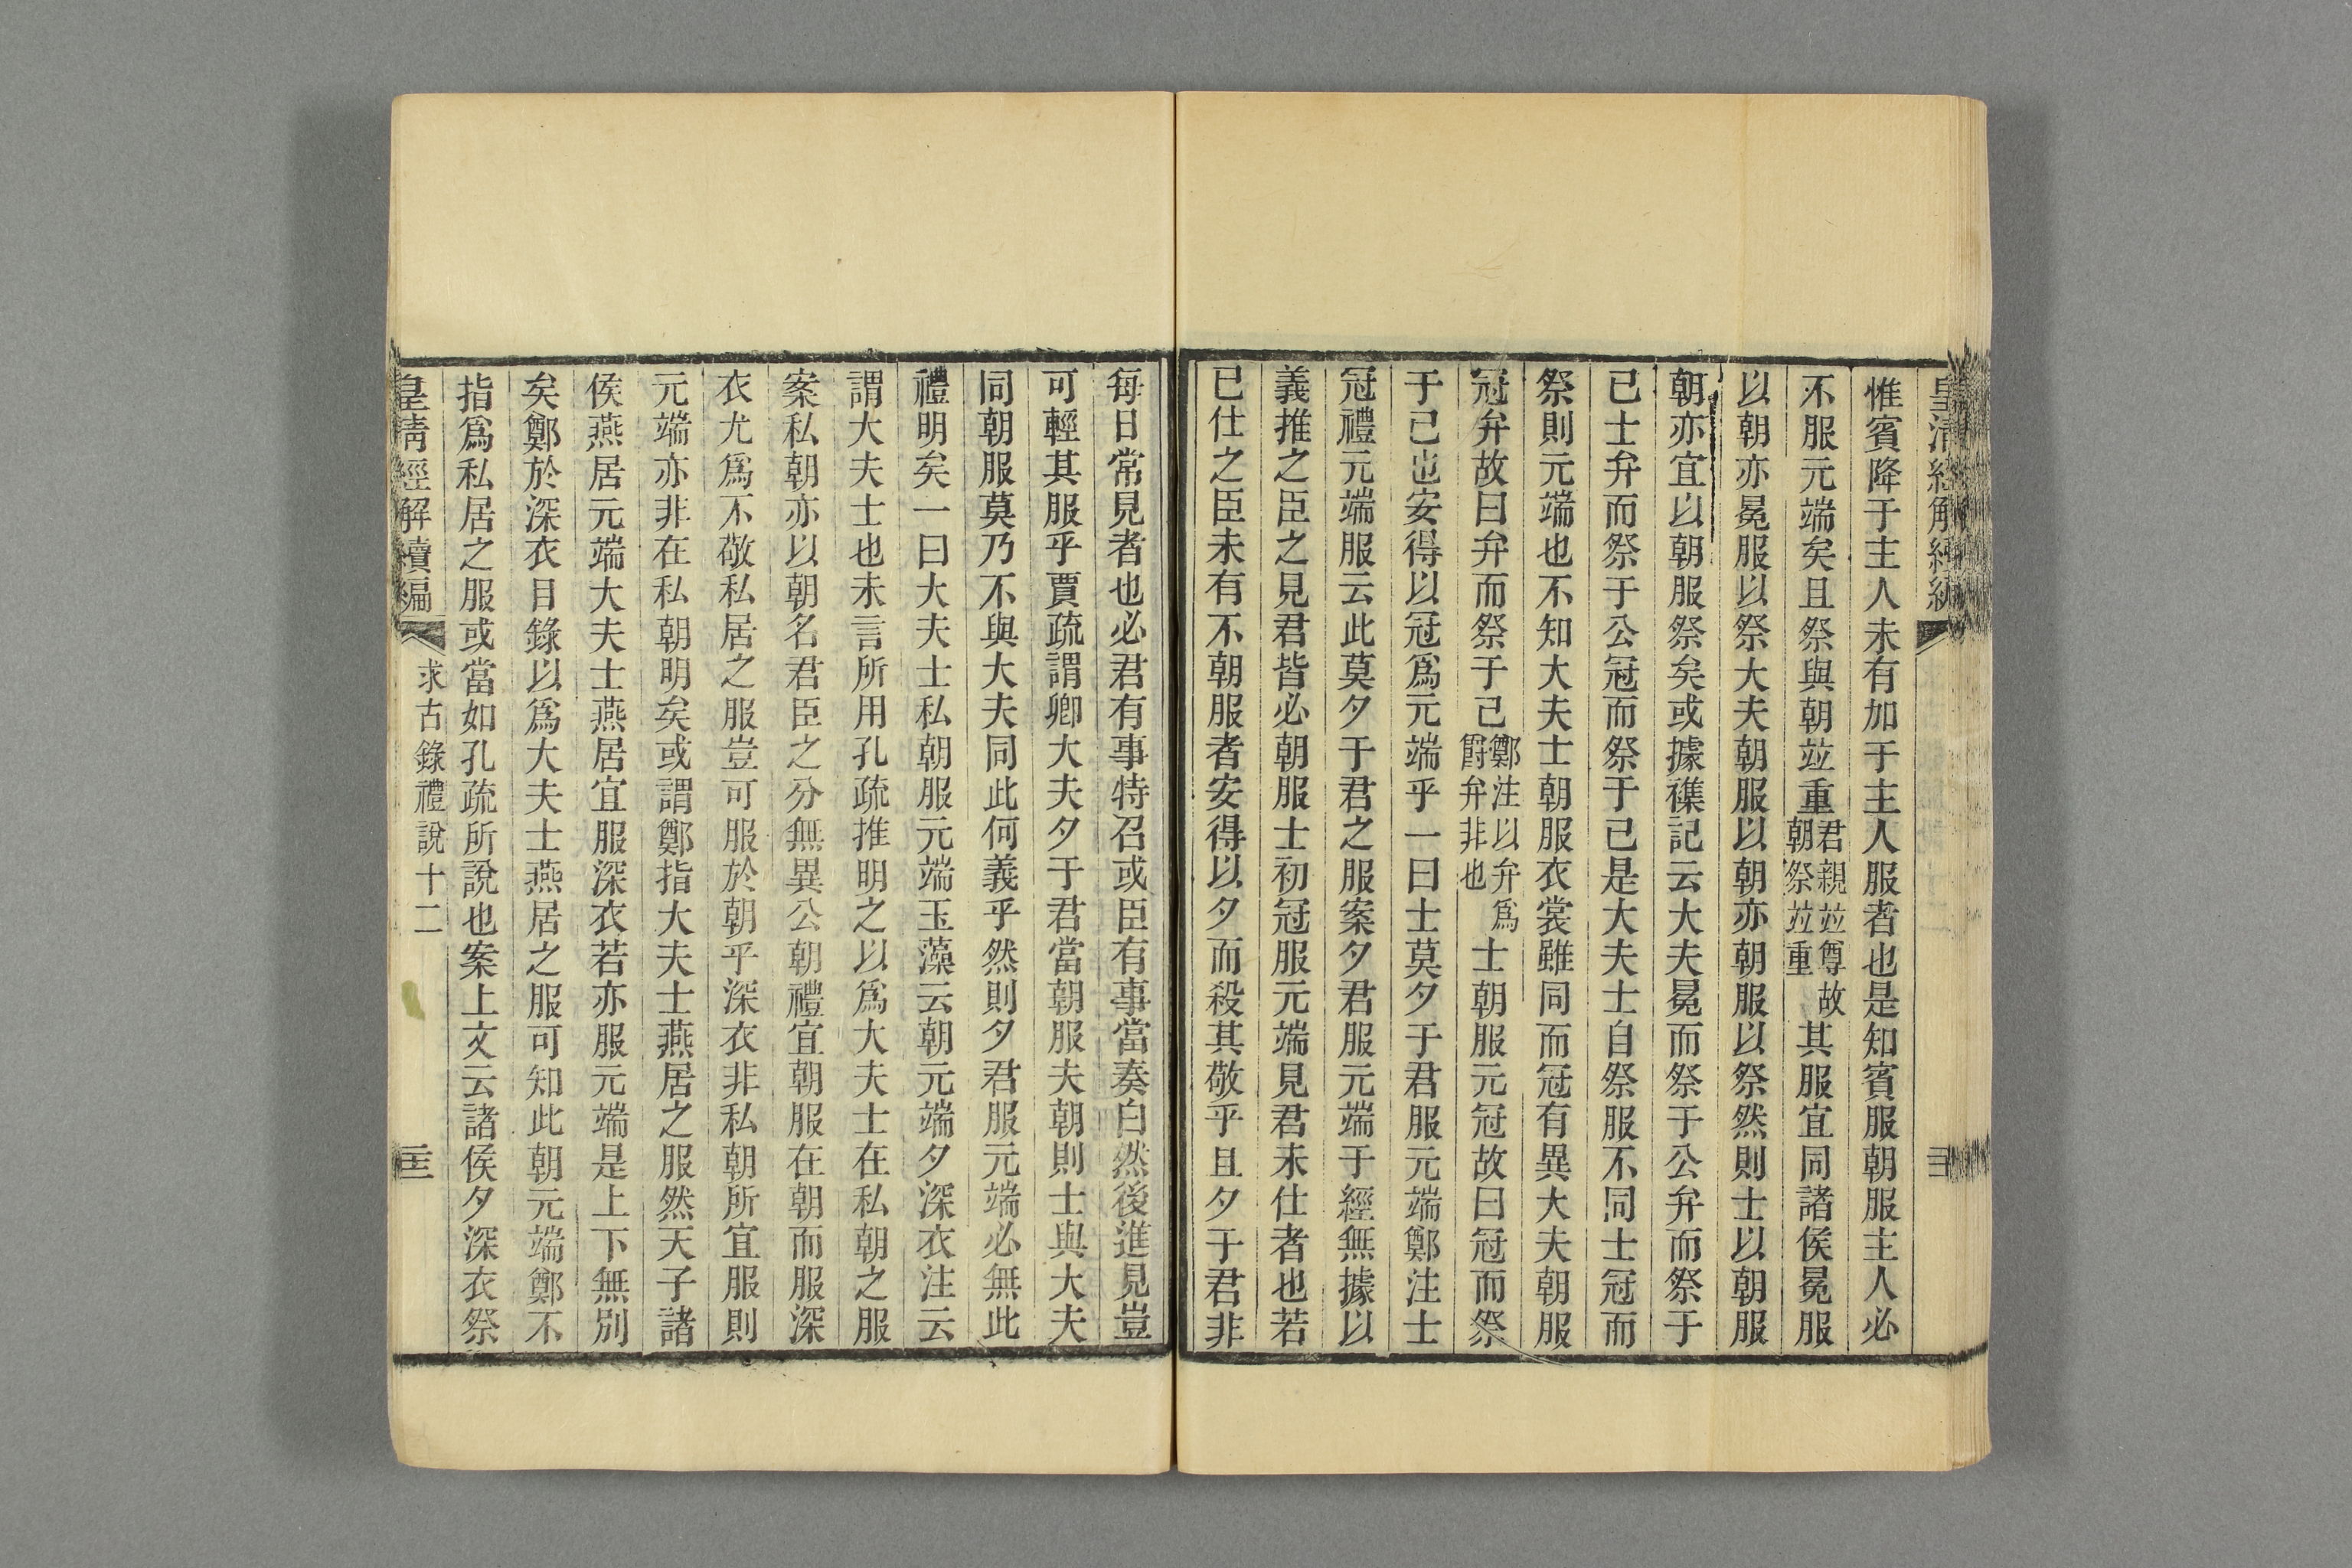 皇清經解續編
惟賓降于主人未有加于主人服者也是知賓服朝服主人必
不服元端矣且祭與朝竝重君親竝尊故朝祭竝重其服宜同諸侯冕服
以朝亦冕服以祭大夫朝服以朝亦朝服以祭然則士以朝服
朝亦宜以朝服祭矣或據襍記云大夫冕而祭于公弁而祭于
己士弁而祭于公冠而祭于己是大夫士自祭服不同士冠而
祭則元端也不知大夫士朝服衣裳雖同而冠有異大夫朝服
冠弁故曰弁而祭于己鄭注以弁爲爵弁非也士朝服元冠故曰冠而祭
于己也安得以冠爲元端乎一曰士莫夕于君服元端鄭注士
冠禮元端服云此莫夕于君之服案夕君服元端于經無據以
義推之臣之見君皆必朝服士初冠服元端見君未仕者也若
已仕之臣未有不朝服者安得以夕而殺其敬乎且夕于君非
每日常見者也必君有事特召或臣有事當奏白然後進見豈
可輕其服乎賈疏謂卿大夫夕于君當朝服夫朝則士與大夫
同朝服莫乃不與大夫同此何義乎然則夕君服元端必無此
禮明矣一曰大夫士私朝服元端玉藻云朝元端夕深衣注云
謂大夫士也未言所用孔疏推明之以爲大夫士在私朝之服
案私朝亦以朝名君臣之分無異公朝禮宜朝服在朝而服深
衣尤爲不敬私居之服豈可服於朝乎深衣非私朝所宜服則
元端亦非在私朝明矣或謂鄭指大夫士燕居之服然天子諸
侯燕居元端大夫士燕居宜服深衣若亦服元端是上下無別
矣鄭於深衣目錄以爲大夫士燕居之服可知此朝元端鄭不
指爲私居之服或當如孔疏所說也案上文云諸侯夕深衣祭
皇清經解續編
求古錄禮說十二